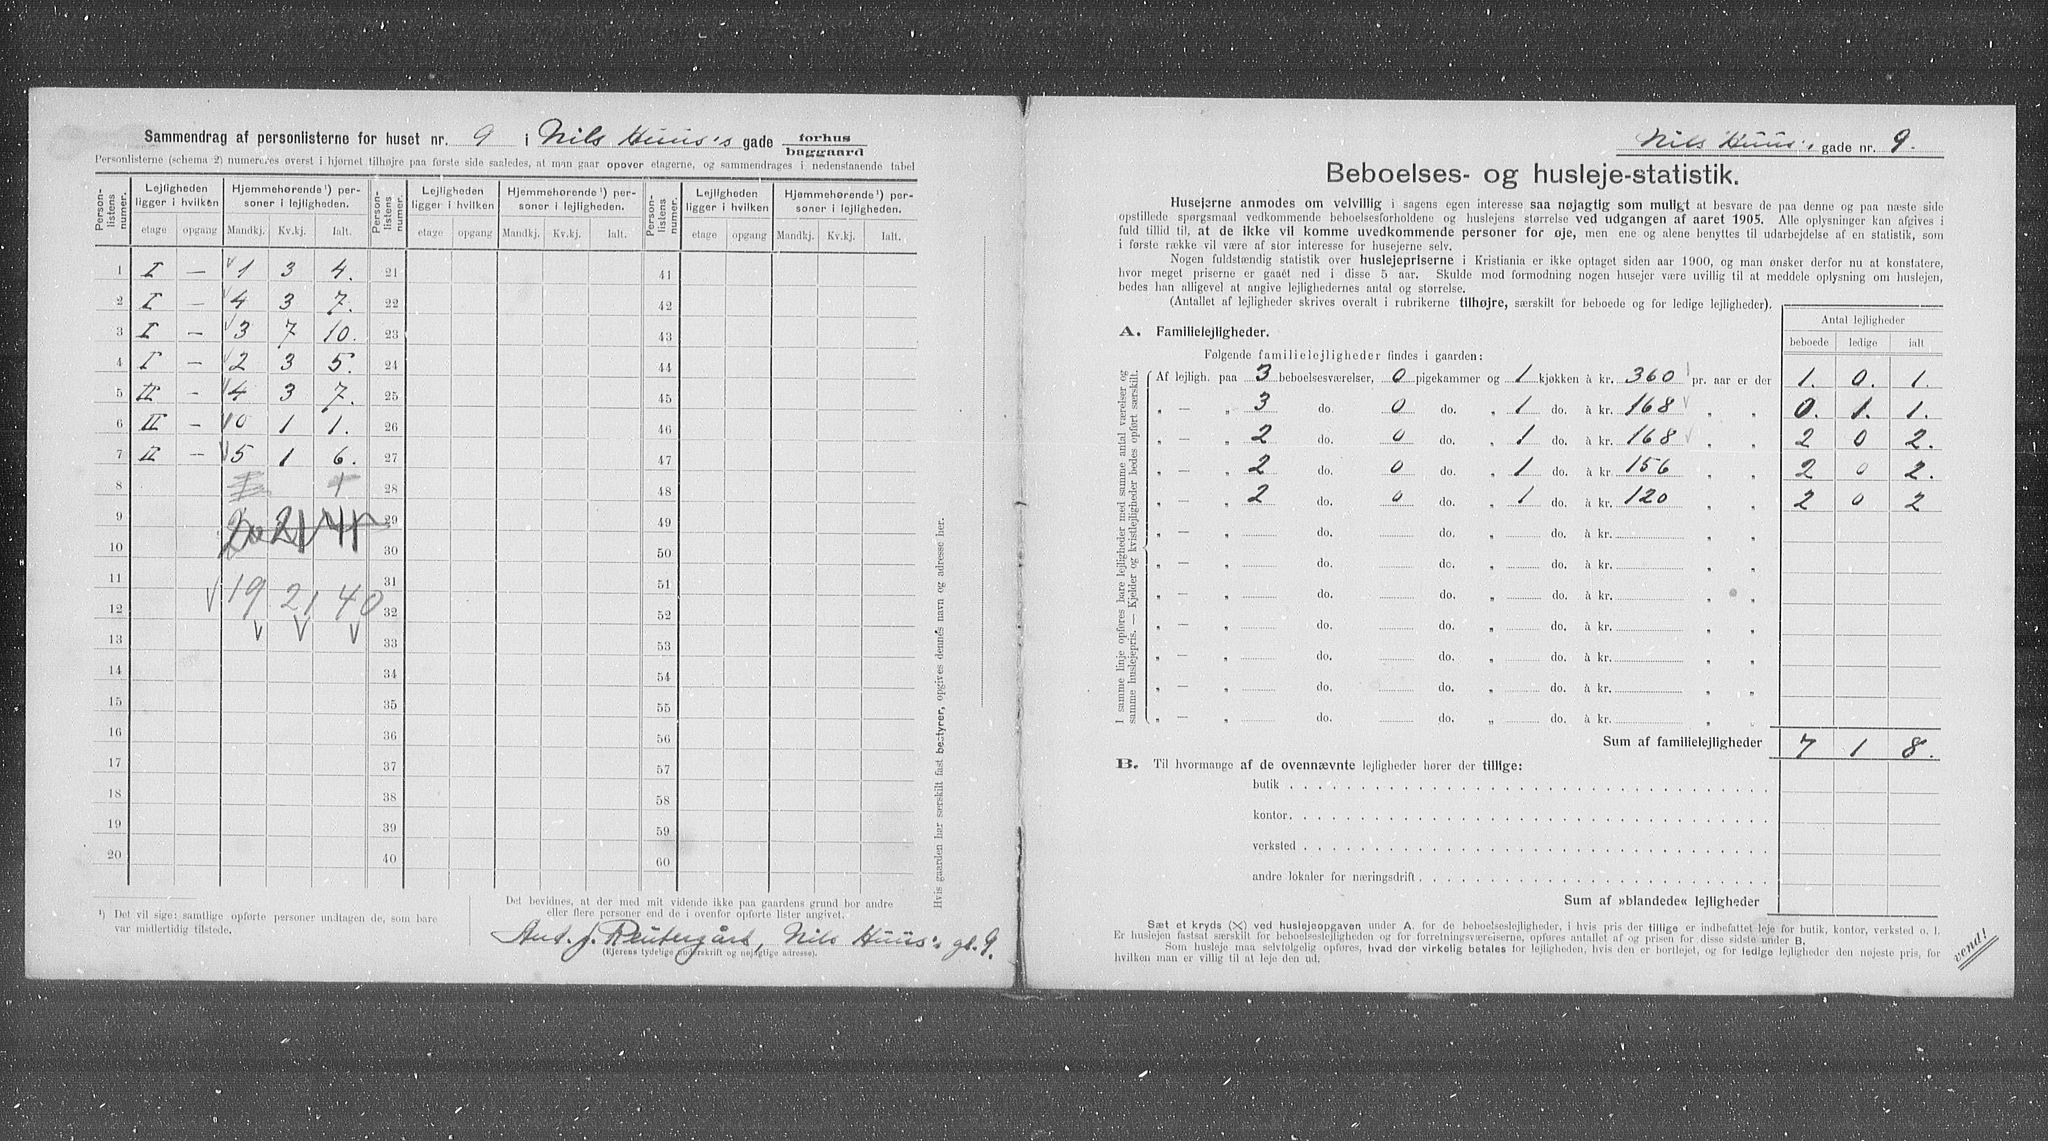 Sammendrag af personlisterne for huset nr. 9 i Nils Huus's gade forhus baggaard
Personlisterne (schema 2) numereres øverst i hjørnet tilhøjre paa første side saaledes, at man gaar opover etagerne, og sammendrages i nedenstaaende tabel
Person-listens numer. Lejligheden ligger i hvilken Hjemmehørende¹) personer i lejligheden. Person-listens numer. Lejligheden ligger i hvilken Hjemmehørende¹) personer i lejligheden. Person-listens numer. Lejligheden ligger i hvilken Hjemmehørende¹) personer i lejligheden.
etage opgang Mandkj. Kv.kj. Ialt. etage opgang Mandkj. Kv.kj. Ialt. etage opgang Mandkj. Kv.kj. Ialt.
1 I — 1 3 4. 21 41
2 I — 4 3 7. 22 42
3 I — 3 7 10. 23 43
4 I — 2 3 5. 24 44
5 II — 4 3 7. 25 45
6 II — 0 1 1. 26 46
7 II — 5 1 6. 27 47
8 28 48
9 20 21 41 29 49
10 30 50
11 19 21 40 31 51
12 32 52
13 33 53
14 34 54
15 35 55
16 36 56
17 37 57
18 38 58
19 39 59
20 40 60
Hvis gaarden har særskilt fast bestyrer, opgives dennes navn og adresse her.
¹) Det vil sige: samtlige opførte personer undtagen de, som bare
var midlertidig tilstede.
Det bevidnes, at der med mit vidende ikke paa gaardens grund bor andre
eller flere personer end de i ovenfor opførte lister angivet.
Ant. J. Reutergårt, Nils Huus's gt. 9.
(Ejerens tydelige underskrift og nøjagtige adresse).
Nils Huus's gade nr. 9.
Beboelses- og husleje-statistik.
Husejerne anmodes om velvillig i sagens egen interesse saa nøjagtig som muligt at besvare de paa denne og paa næste side
opstillede spørgsmaal vedkommende beboelsesforholdene og huslejens størrelse ved udgangen af aaret 1905. Alle oplysninger kan afgives i
fuld tillid til, at de ikke vil komme uvedkommende personer for øje, men ene og alene benyttes til udarbejdelse af en statistik, som
i første række vil være af stor interesse for husejerne selv.
Nogen fuldstændig statistik over huslejepriserne i Kristiania er ikke optaget siden aar 1900, og man ønsker derfor nu at konstatere,
hvor meget priserne er gaaet ned i disse 5 aar. Skulde mod formodning nogen husejer være uvillig til at meddele oplysning om huslejen,
bedes han alligevel at angive lejlighedernes antal og størrelse.
(Antallet af lejligheder skrives overalt i rubrikerne tilhøjre, særskilt for beboede og for ledige lejligheder).
Antal lejligheder
beboede ledige ialt
A. Familielejligheder.
Følgende familielejligheder findes i gaarden:
I samme linje opføres bare lejligheder med samme antal værelser og
samme huslejepris. — Kjelder og kvistlejligheder bedes opført særskilt.
Af lejligh. paa 3 beboelsesværelser, 0 pigekammer og 1 kjøkken à kr. 360 pr. aar er der 1. 0. 1.
„ — „ 3 do. 0 do. „ 1 do. à kr. 168 „ „ 0. 1. 1.
„ — „ 2 do. 0 do. „ 1 do. à kr. 168 „ „ 2 0 2.
„ — „ 2 do. 0 do. „ 1 do. à kr. 156 „ „ 2 0 2.
„ — „ 2 do. 0 do. „ 1 do. à kr. 120 „ „ 2 0 2
„ — „ do. do. „ do. à kr. „ „
„ — „ do. do. „ do. à kr. „ „
„ — „ do. do. „ do. à kr. „ „
„ — „ do. do. „ do. à kr. „ „
„ — „ do. do. „ do. à kr. „ „
„ — „ do. do. „ do. à kr. „ „
„ — „ do. do. „ do. à kr. „ „
Sum af familielejligheder 7 1 8.
B. Til hvormange af de ovennævnte lejligheder hører der tillige:
butik
kontor
verksted
andre lokaler for næringsdrift
Sum af »blandede« lejligheder
Sæt et kryds (X) ved huslejeopgaven under A. for de beboelseslejligheder, i hvis pris der tillige er indbefattet leje for butik, kontor, verksted o. l.
Er huslejen fastsat særskilt for beboelseslejligheden og for forretningsværelserne, opføres antallet af og prisen for disse sidste under B.
Som husleje maa selvfølgelig opføres, hvad der virkelig betales for lejligheden, hvis den er bortlejet, og for ledige lejligheder den nøjeste pris, for
hvilken man er villig til at leje den ud.
vend!